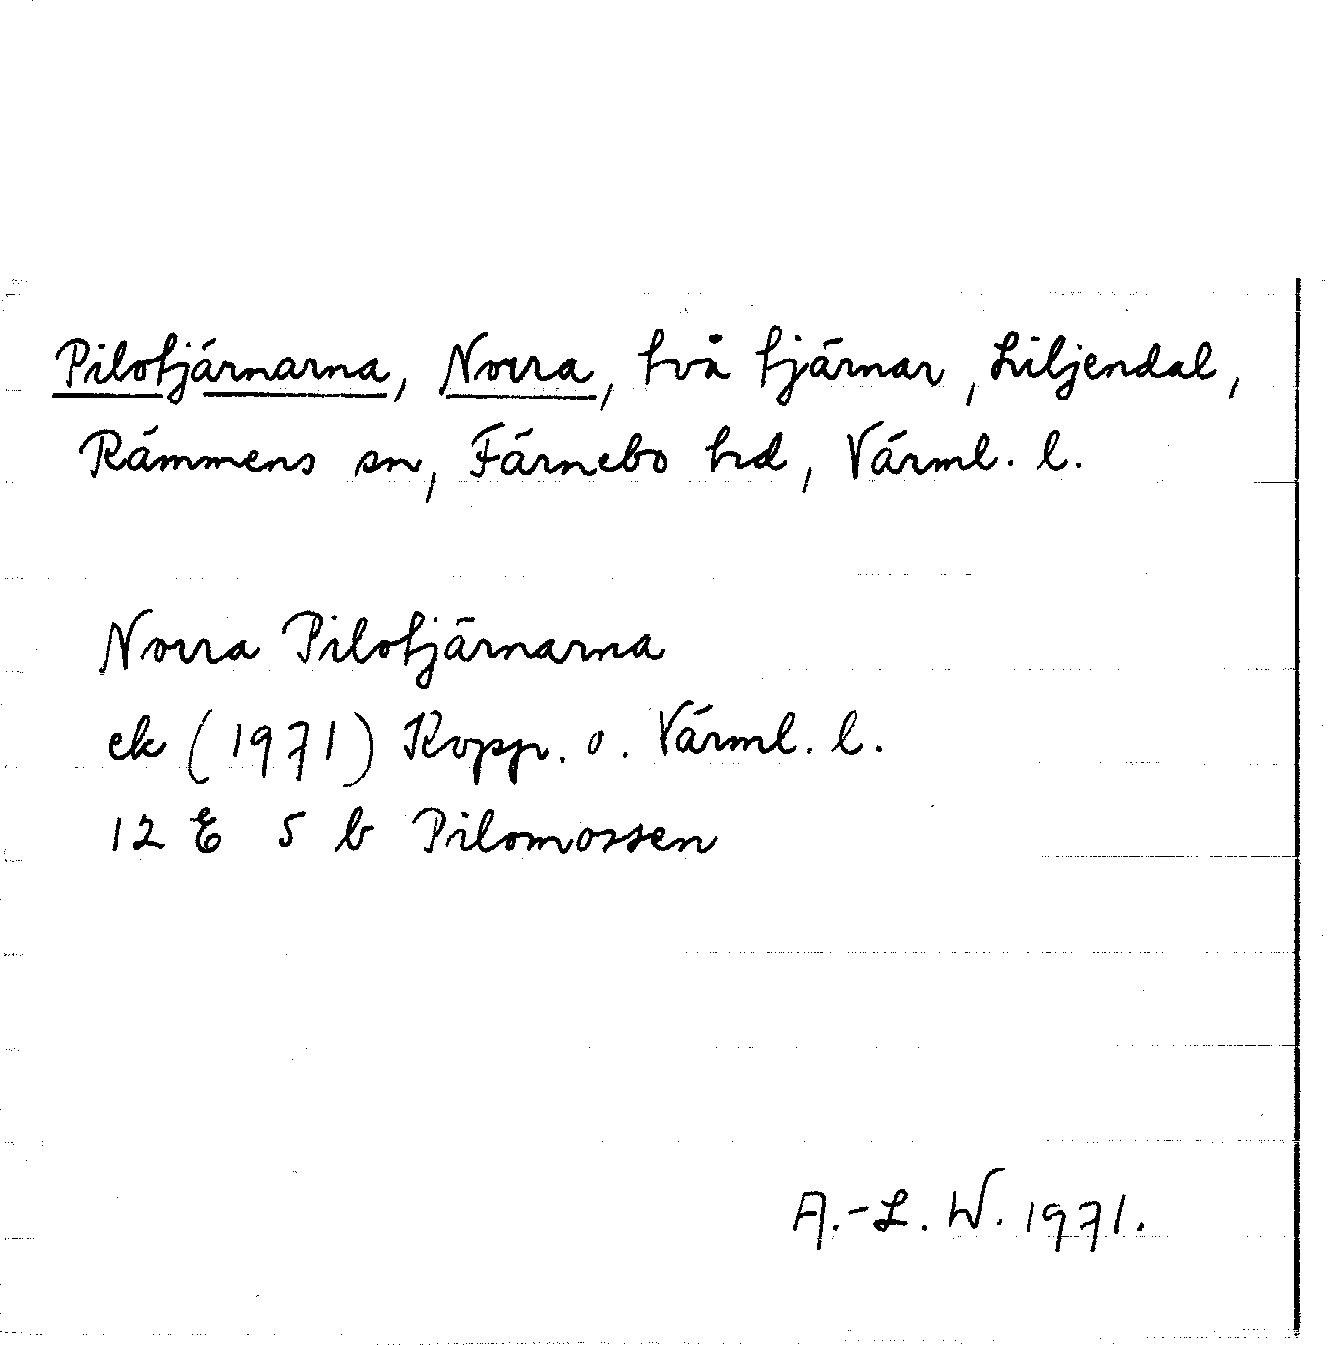 Pilotjärnarna, Norra, två tjärnar, Liljendal,
Rämmens sn, Färnebo hd, Värml. l.
Norra Pilotjärnarna
ek (1971) Kopp. o. Värml. l.
12 E 5 b Pilomossen
A.-L. W. 1971.